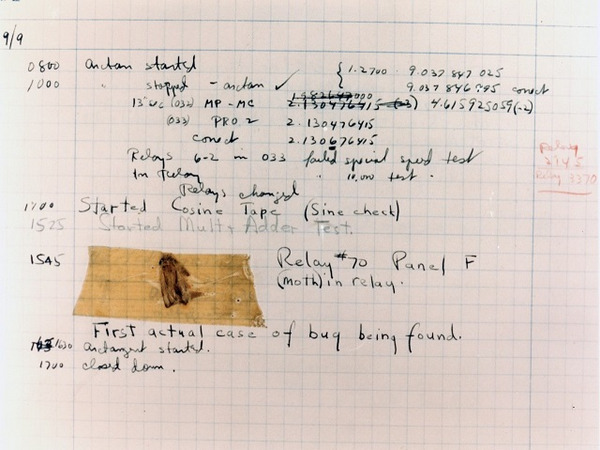 9/9
0800 arctan started { 1.2700 9.037 847 025
1000 " stopped - arctan ✓ 9.037 846 995 correct
13" uc (032) MP - MC 2.130476415 (-3) 4.615925059(-2)
(033) PRO 2 2.130476415
correct 2.130676415
Relays 6-2 in 033 failed special speed test
in Relay " 10,000 test .
Relays changed
Relay
2145
Relay 3370
1700 Started Cosine Tape (Sine check)
1525 Started Mult+ Adder Test.
1545 Relay #70 Panel F
(moth) in relay.
First actual case of bug being found.
1630 arctangent started.
1700 closed down .